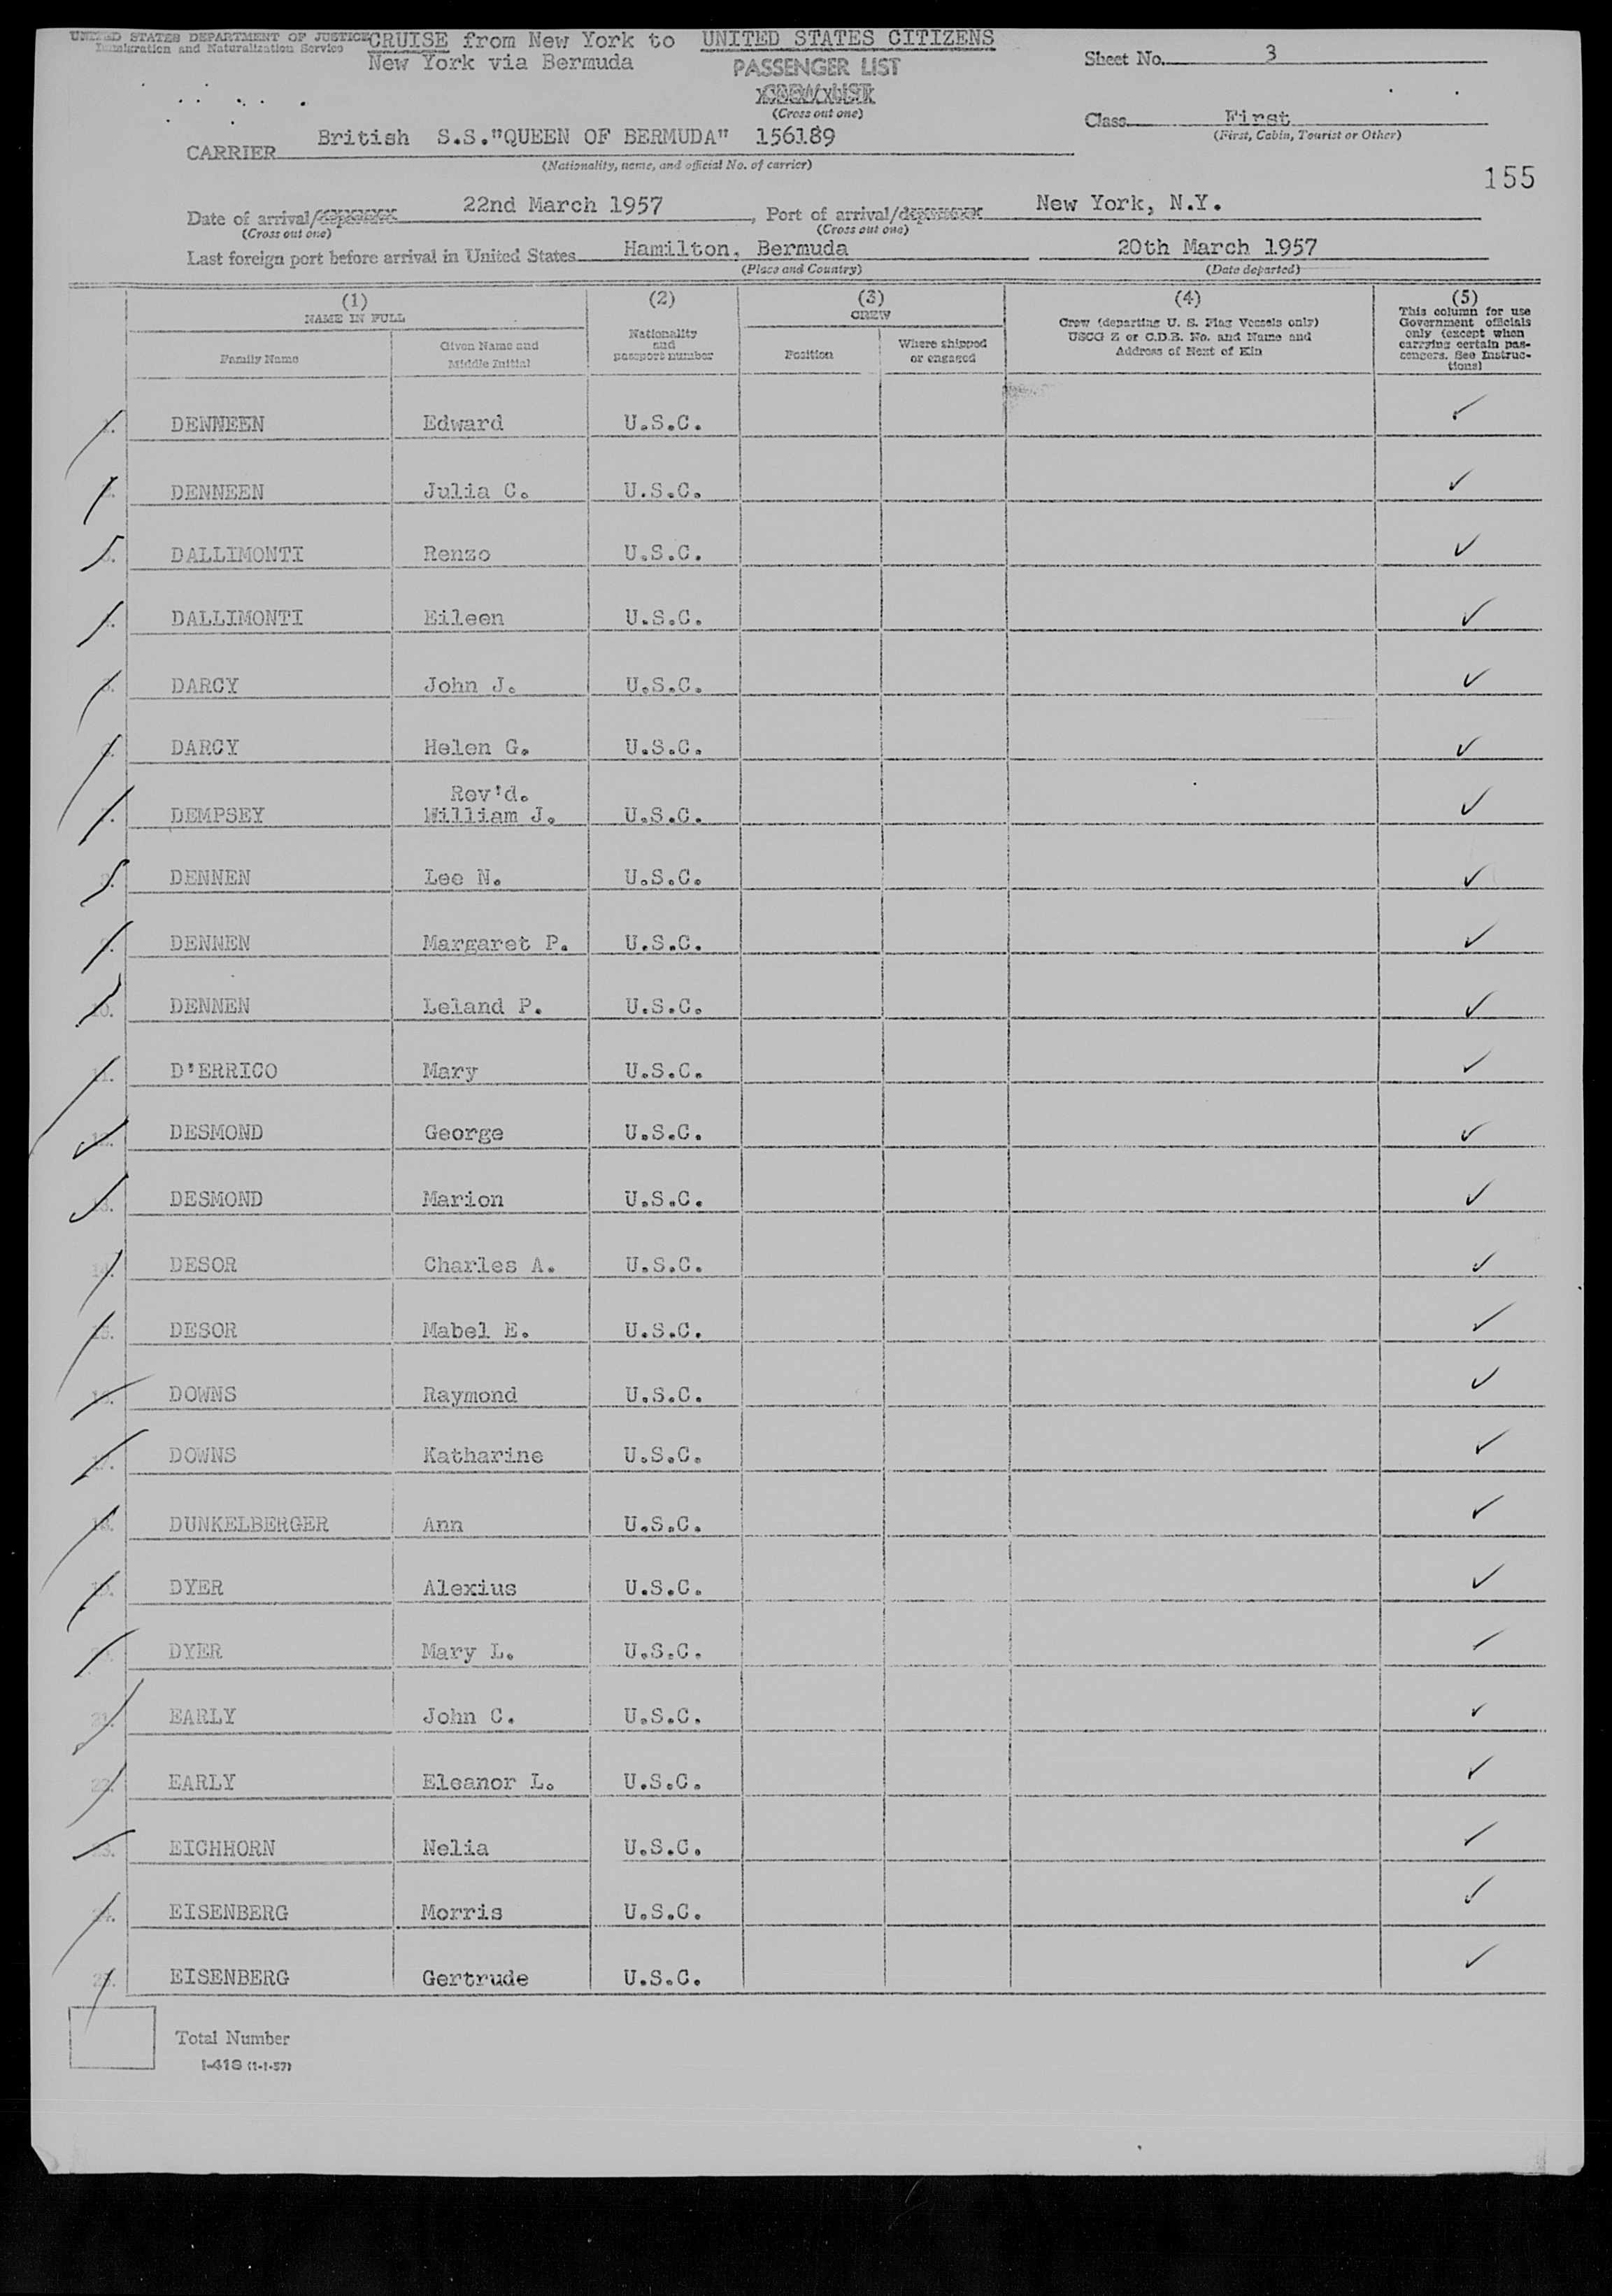 UNITED STATES DEPARTMENT OF JUSTICE
Immigration and Naturalization Service
CRUISE from New York to
New York via Bermuda
UNITED STATES CITIZENS
PASSENGER LIST
CREW LIST
(Cross out one)
Sheet No. 3
Class First
(First, Cabin, Tourist or Other)
CARRIER British S.S."QUEEN OF BERMUDA" 156189
(Nationality, name, and official No. of carrier)
155
Date of arrival/ 22nd March 1957, Port of arrival/ New York, N.Y.
(Cross out one) (Cross out one)
Last foreign port before arrival in United States Hamilton, Bermuda 20th March 1957
(Place and Country) (Date departed)
(1) NAME IN FULL
Family Name
Given Name and Middle Initial
(2) Nationality and passport number
(3) CREW
Position
Where shipped or engaged
(4) Crew (departing U. S. Flag Vessels only) USCG Z or C.D.B. No. and Name and Address of Next of Kin
(5) This column for use Government officials only (except when carrying certain passengers. See Instructions)
1. DENNEEN Edward U.S.C. ✓
2. DENNEEN Julia C. U.S.C. ✓
3. DALLIMONTI Renzo U.S.C. ✓
4. DALLIMONTI Eileen U.S.C. ✓
5. DARCY John J. U.S.C. ✓
6. DARCY Helen G. U.S.C. ✓
7. DEMPSEY Rev'd. William J. U.S.C. ✓
8. DENNEN Lee N. U.S.C. ✓
9. DENNEN Margaret P. U.S.C. ✓
10. DENNEN Leland P. U.S.C. ✓
11. D'ERRICO Mary U.S.C. ✓
12. DESMOND George U.S.C. ✓
13. DESMOND Marion U.S.C. ✓
14. DESOR Charles A. U.S.C. ✓
15. DESOR Mabel E. U.S.C. ✓
16. DOWNS Raymond U.S.C. ✓
17. DOWNS Katharine U.S.C. ✓
18. DUNKELBERGER Ann U.S.C. ✓
19. DYER Alexius U.S.C. ✓
20. DYER Mary L. U.S.C. ✓
21. EARLY John C. U.S.C. ✓
22. EARLY Eleanor L. U.S.C. ✓
23. EICHHORN Nelia U.S.C. ✓
24. EISENBERG Morris U.S.C. ✓
25. EISENBERG Gertrude U.S.C. ✓
Total Number
I-418 (1-1-57)